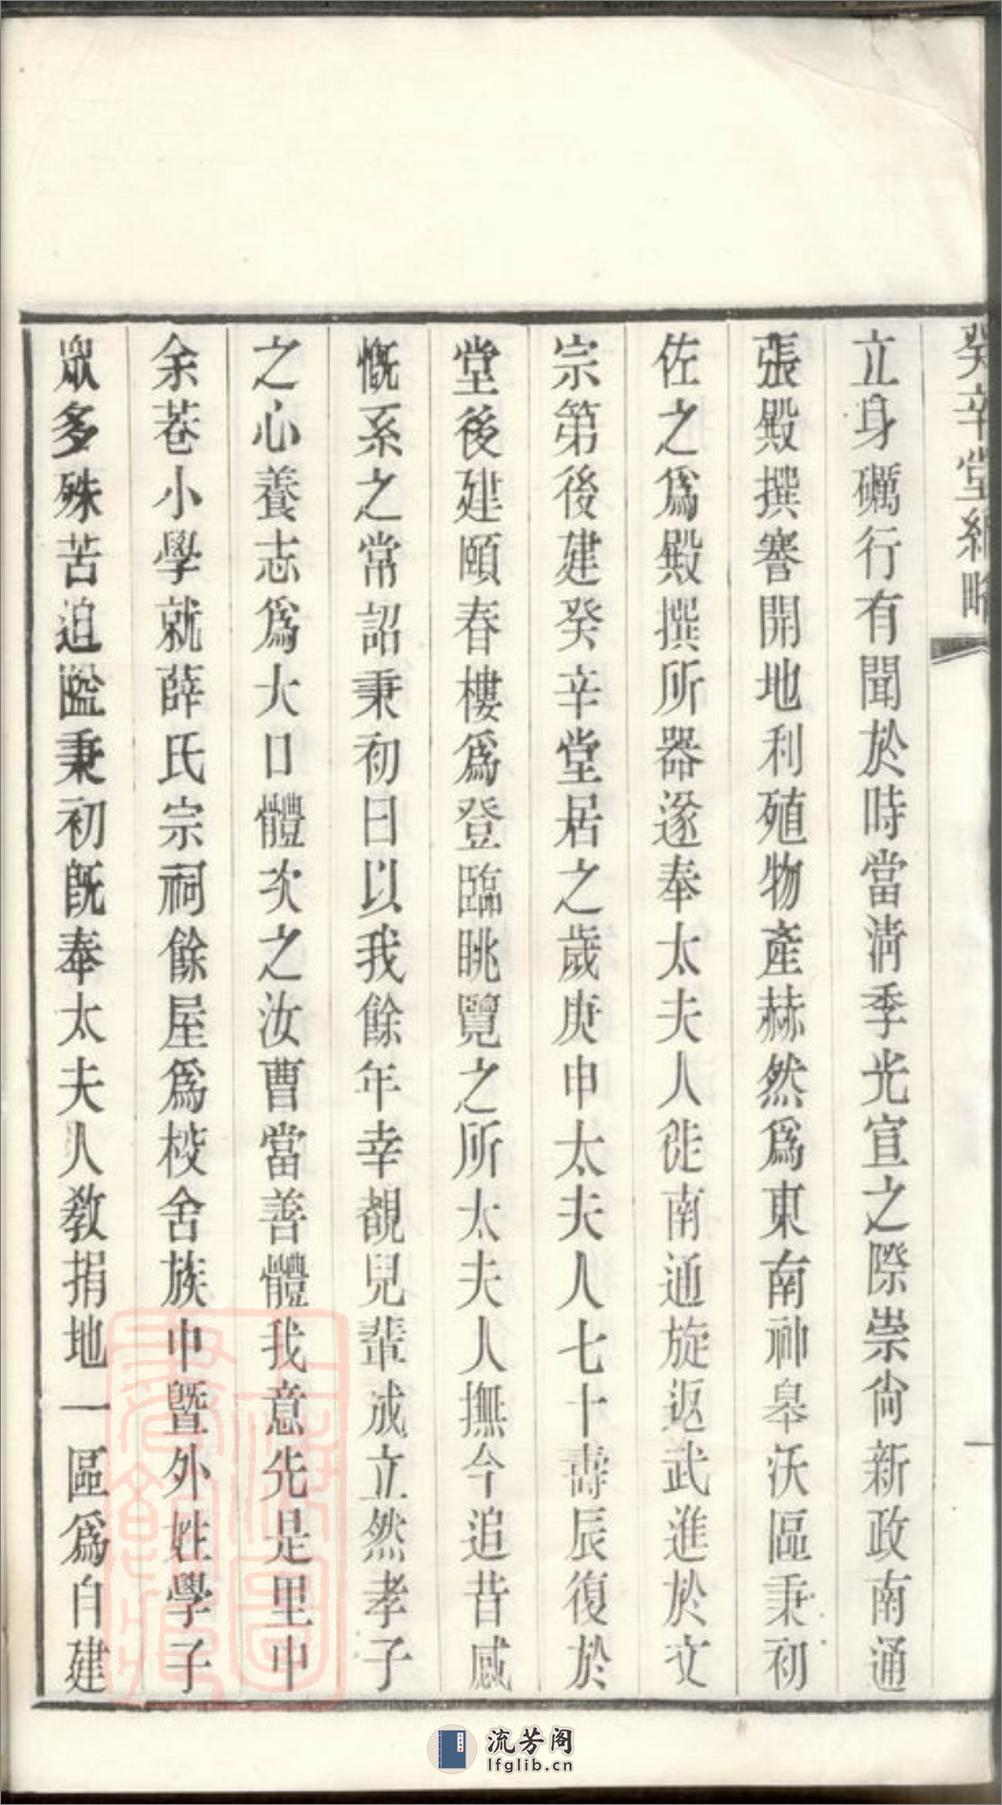 癸辛堂紀略
一
立身礪行有聞於時當淸季光宣之際崇尙新政南通
張殿撰謇開地利殖物產赫然爲東南神皋沃區秉初
佐之爲殿撰所器遂奉太夫人徙南通旋返武進於文
宗第後建癸辛堂居之歲庚申太夫人七十壽辰復於
堂後建頤春樓爲登臨眺覽之所太夫人撫今追昔感
慨系之常詔秉初曰以我餘年幸覩兒輩成立然孝子
之心養志爲大口體次之汝曹當善體我意先是里中
余巷小學就薛氏宗祠餘屋爲校舍族中曁外姓學子
眾多殊苦迫隘秉初旣奉太夫人敎捐地一區爲自建
流芳阁
lfglib.cn